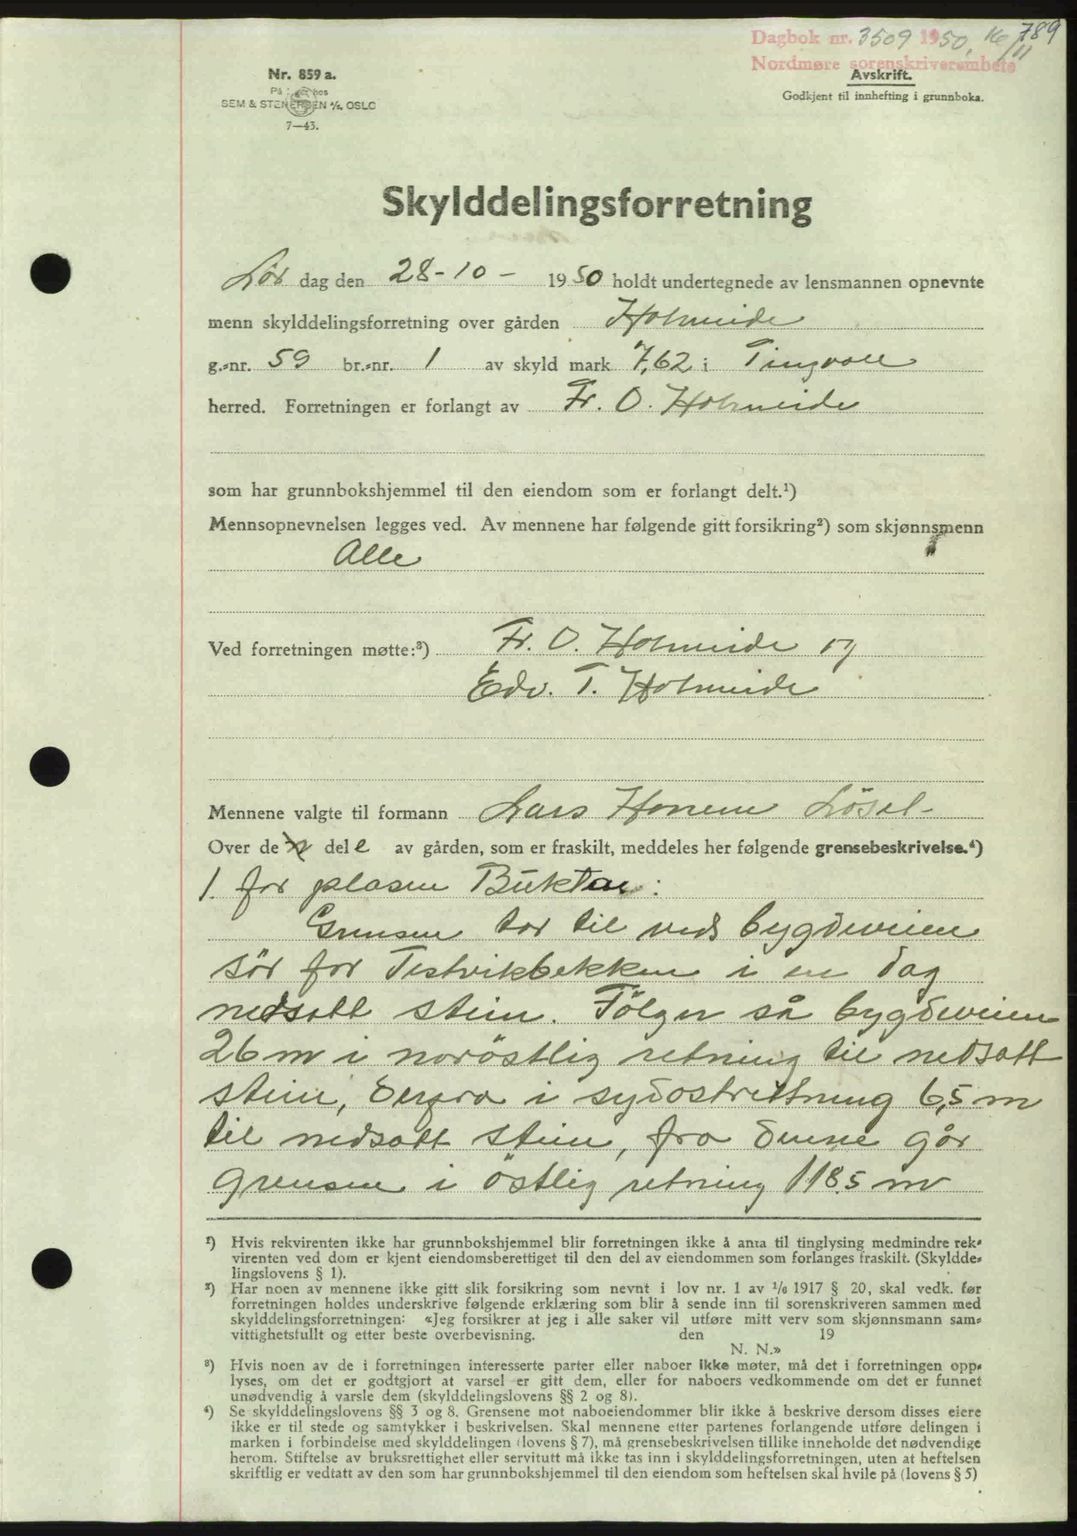 789
Dagbok nr. 3509 1950, 16/11
Nordmøre sorenskriverembete
Nr. 859 a.
SEM & STENERSEN A/S, OSLO
7—43.
Avskrift.
Godkjent til innhefting i grunnboka.
Skylddelingsforretning
Lør dag den 28-10- 1950 holdt undertegnede av lensmannen opnevnte
menn skylddelingsforretning over gården Holmeide
g.-nr. 59 br.-nr. 1 av skyld mark 7,62 i Tingvoll
herred. Forretningen er forlangt av Fr. O. Holmeide
som har grunnbokshjemmel til den eiendom som er forlangt delt.¹)
Mennsopnevnelsen legges ved. Av mennene har følgende gitt forsikring²) som skjønnsmenn
Alle
Ved forretningen møtte:³) Fr. O. Holmeide og
Edv. T. Holmeide
Mennene valgte til formann Lars Löset
Over de dele av gården, som er fraskilt, meddeles her følgende grensebeskrivelse.⁴)
1. for plasen Buktar:
Grensen tar til veds bygdeveien
sör for Testvikbekken i en dag
nedsatt stein. Fölger så bygdeveien
26 m i noröstlig retning til nedsatt
stein, derfra i sydostrettning 6,5 m
til nedsatt stein, fra denne går
grensen i östlig retning 118.5 m
¹) Hvis rekvirenten ikke har grunnbokshjemmel blir forretningen ikke å anta til tinglysing medmindre rek-
virenten ved dom er kjent eiendomsberettiget til den del av eiendommen som forlanges fraskilt. (Skyldde-
lingslovens § 1).
²) Har noen av mennene ikke gitt slik forsikring som nevnt i lov nr. 1 av 1/6 1917 § 20, skal vedk. før
forretningen holdes underskrive følgende erklæring som blir å sende inn til sorenskriveren sammen med
skylddelingsforretningen: «Jeg forsikrer at jeg i alle saker vil utføre mitt verv som skjønnsmann sam-
vittighetsfullt og etter beste overbevisning. den 19
N. N.»
³) Hvis noen av de i forretningen interesserte parter eller naboer ikke møter, må det i forretningen opp-
lyses, om det er godtgjort at varsel er gitt dem, eller for naboers vedkommende om det er funnet
unødvendig å varsle dem (skylddelingslovens §§ 2 og 8).
⁴) Se skylddelingslovens §§ 3 og 8. Grensene mot naboeiendommer blir ikke å beskrive dersom disses eiere
ikke er til stede og samtykker i beskrivelsen. Skal mennene etter partenes forlangende utføre delingen i
marken i forbindelse med skylddelingen (lovens § 7), må grensebeskrivelsen tillike inneholde det nødvendige
herom. Stiftelse av bruksrettighet eller servitutt må ikke tas inn i skylddelingsforretningen, uten at heftelsen
skriftlig er vedtatt av den som har grunnbokshjemmel til den eiendom som heftelsen skal hvile på (lovens § 5)